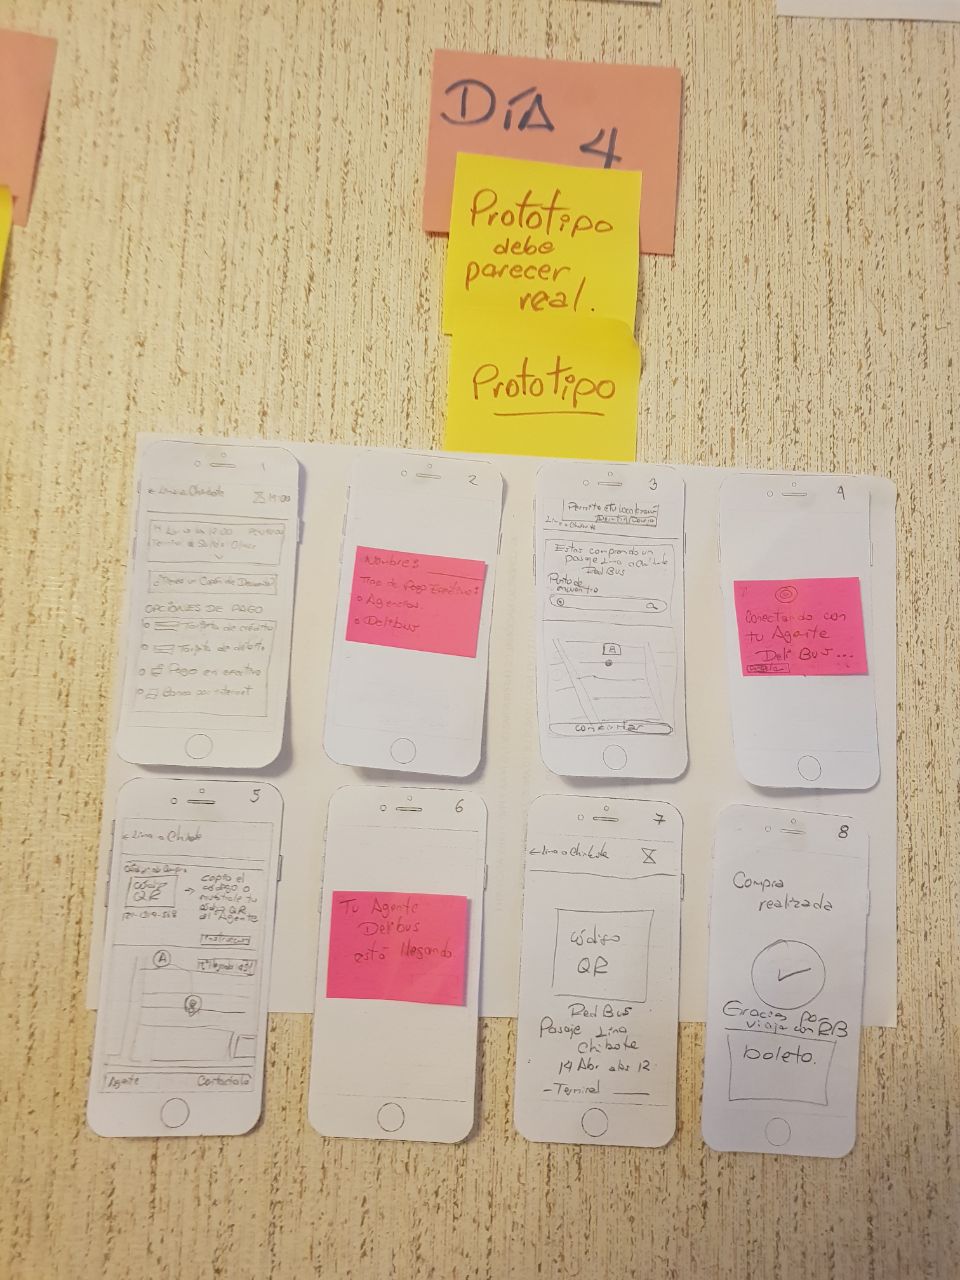 DÍA
4
Prototipo
debe
parecer
real.
Prototipo
1
← Lima a Chibote
14:00
¿Tienes un Cupón de Descuento?
OPCIONES DE PAGO
Tarjeta de crédito
Tarjeta de débito
Pago en efectivo
Banca por internet
2
Nombre:
Tipo de Pago Efectivo:
Agencias
Delibus
3
Permite tu
Estas comprando un
pasaje Lima a Chibote
Red Bus
Punto de
encuentro
A
4
Conectando con
tu Agente
Deli Bus...
5
← Lima a Chibote
Código de Compra
Código
QR
→ copia el
código o
muéstrale tu
código QR
al Agente
A
Agente
Contactalo
6
Tu Agente
Delibus
está llegando
7
← Lima a Chibote
Código
QR
Red Bus
Pasaje Lima
Chibote
14 Abr a las 12:
- Terminal
8
Compra
realizada
Gracias por
viajar con RB
boleto.